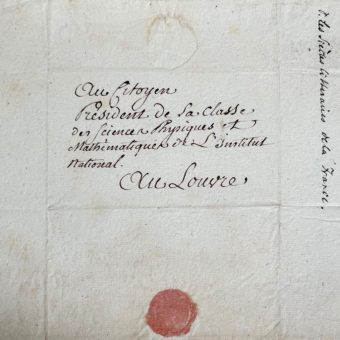 Au Citoyen
Président de la Classe
des Sciences Physiques et
Mathématiques de L'Institut
National.
Au Louvre
Les Siècles litteraires de la France.